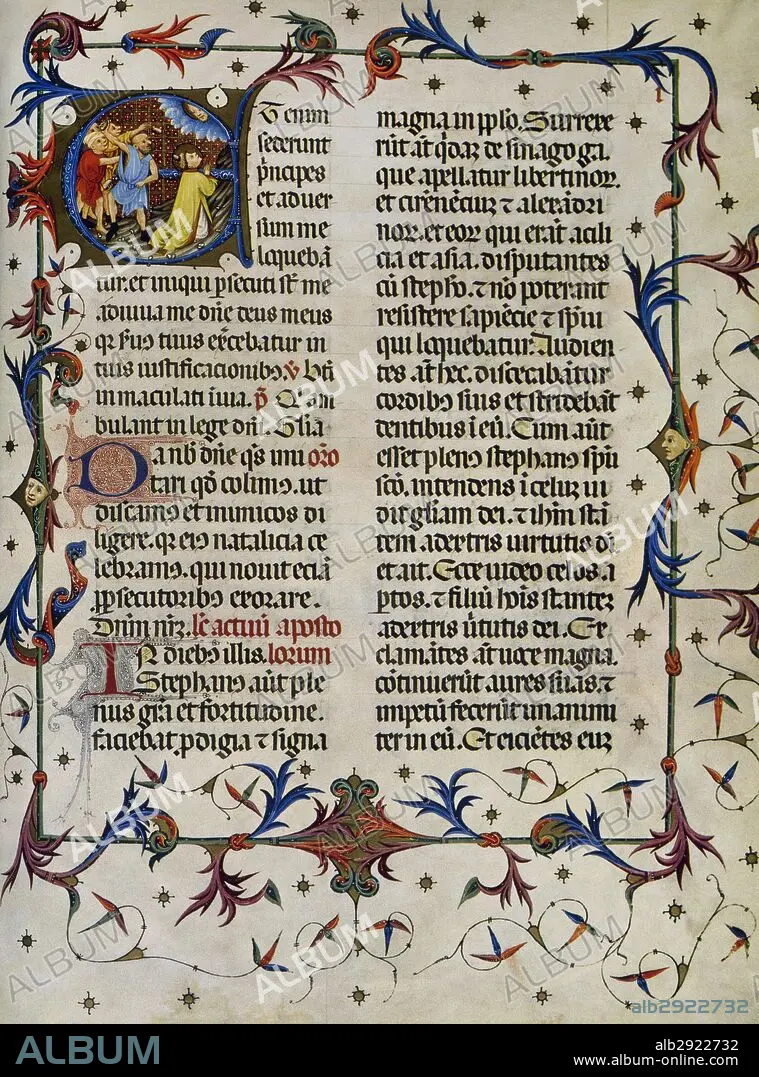 Et enim
sederunt
principes
et aduer
sum me
loqueba
tur. et iniqui psecuti st me
adiuua me dne deus meus
qr suus tuus exercebatur in
tuis iustificationibus. v Bti
inmaculati in uia. p Qi am
bulant in lege dni. Glia
Da nob dne qs imi oro
tari qd colimus. ut
discamus et inimicos di
ligere. qr eius natalicia ce
lebramus. qui nouit etia
p psecutoribus exorare.
Dnm nrm. lc actuu aposto
IN diebus illis. lorum
Stephanus aut ple
nus gra et fortitudine.
faciebat pdigia et signa
magna in pplo. Surrexe
rut at qdaz de sinagoga.
que apellatur libertinor.
et cirenenciuz et alexadri
nor. et eor qui erat a cili
cia et asia. disputantes
cu stepho. et no poterant
resistere sapiecie et spui
qui loquebatur. Audien
tes at hec. disecabatur
cordibus suis et stridebat
dentibus i eu. Cum aut
esset plenus stephanus spu
sco. intendens i celuz ui
dit gliam dei. et ihm sta
tem adextris uirtutis di
et ait. Ecce uideo celos a
ptos. et filiu hois stantez
adextris uirtutis dei. Ex
clamates aut uoce magna.
cotinuerut aures suas. et
impetu fecerut unanimi
ter in eu. Et eicietes euz
alb2922732
ALBUM
alb2922732
www.album-online.com